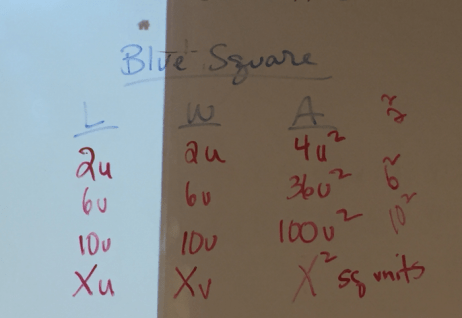 Blue Square
L W A 2²
2u 2u 4u²
6u 6u 36u² 6²
10u 10u 100u² 10²
Xu Xu X² sq units